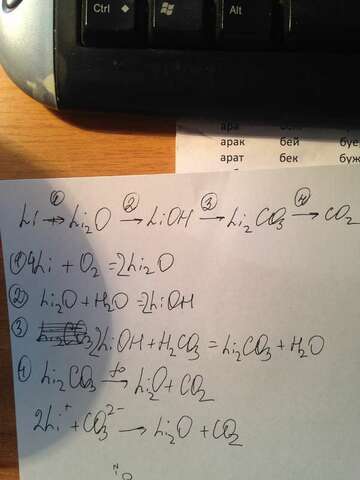 Ctrl Alt
ара
арак бей буе
арат бек буж
Li →① Li₂O →② LiOH →③ Li₂CO₃ →④ CO₂
① 4Li + O₂ = 2Li₂O
② Li₂O + H₂O = 2LiOH
③ 2LiOH + H₂CO₃ = Li₂CO₃ + H₂O
4 Li₂CO₃ →t° Li₂O + CO₂
2Li⁺ + CO₃²⁻ → Li₂O + CO₂